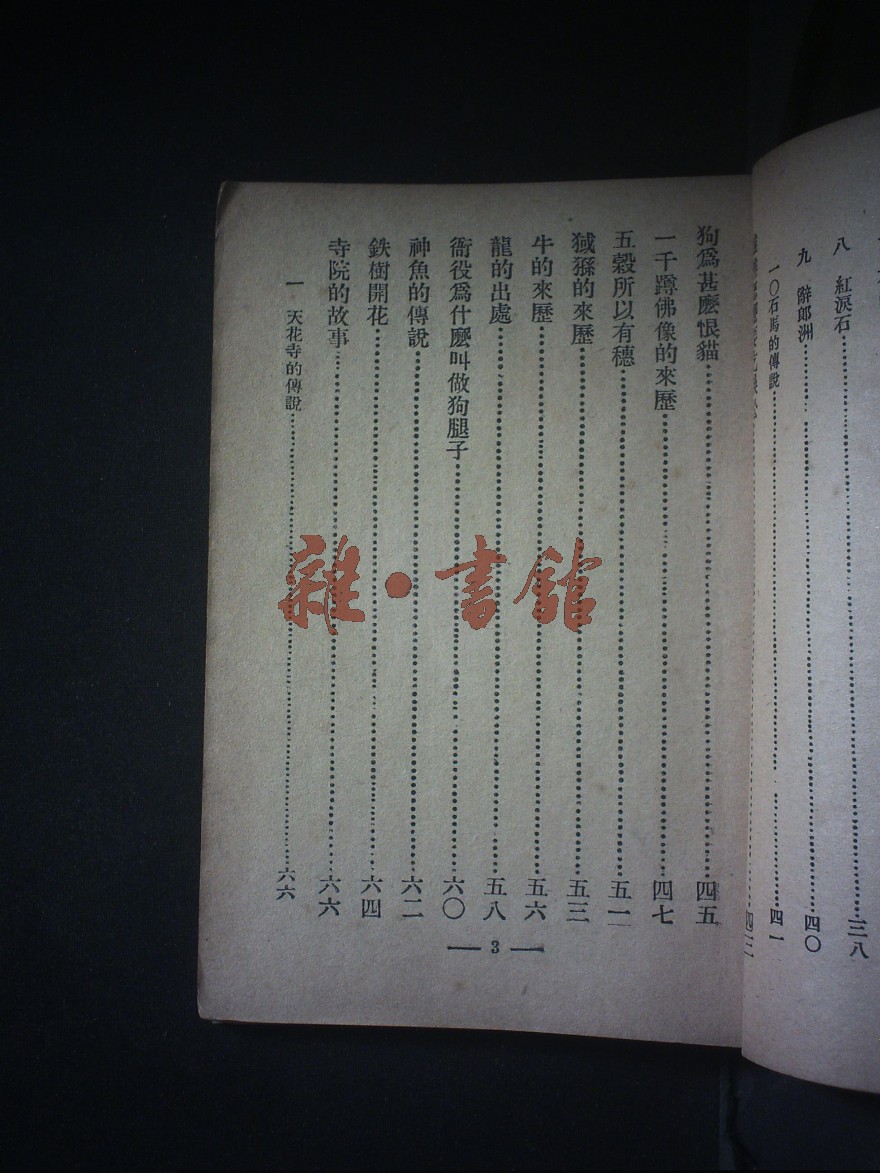 八　紅淚石……三八
九　辭郎洲……四〇
一〇石馬的傳說……四一
狗爲甚麽恨貓……四五
一千蹲佛像的來歷……四七
五穀所以有穗……五一
猢猻的來歷……五三
牛的來歷……五六
龍的出處……五八
衙役爲什麽叫做狗腿子……六〇
神魚的傳說……六二
鉄樹開花……六四
寺院的故事……六六
一　天花寺的傳說……六六
3
雜·書館